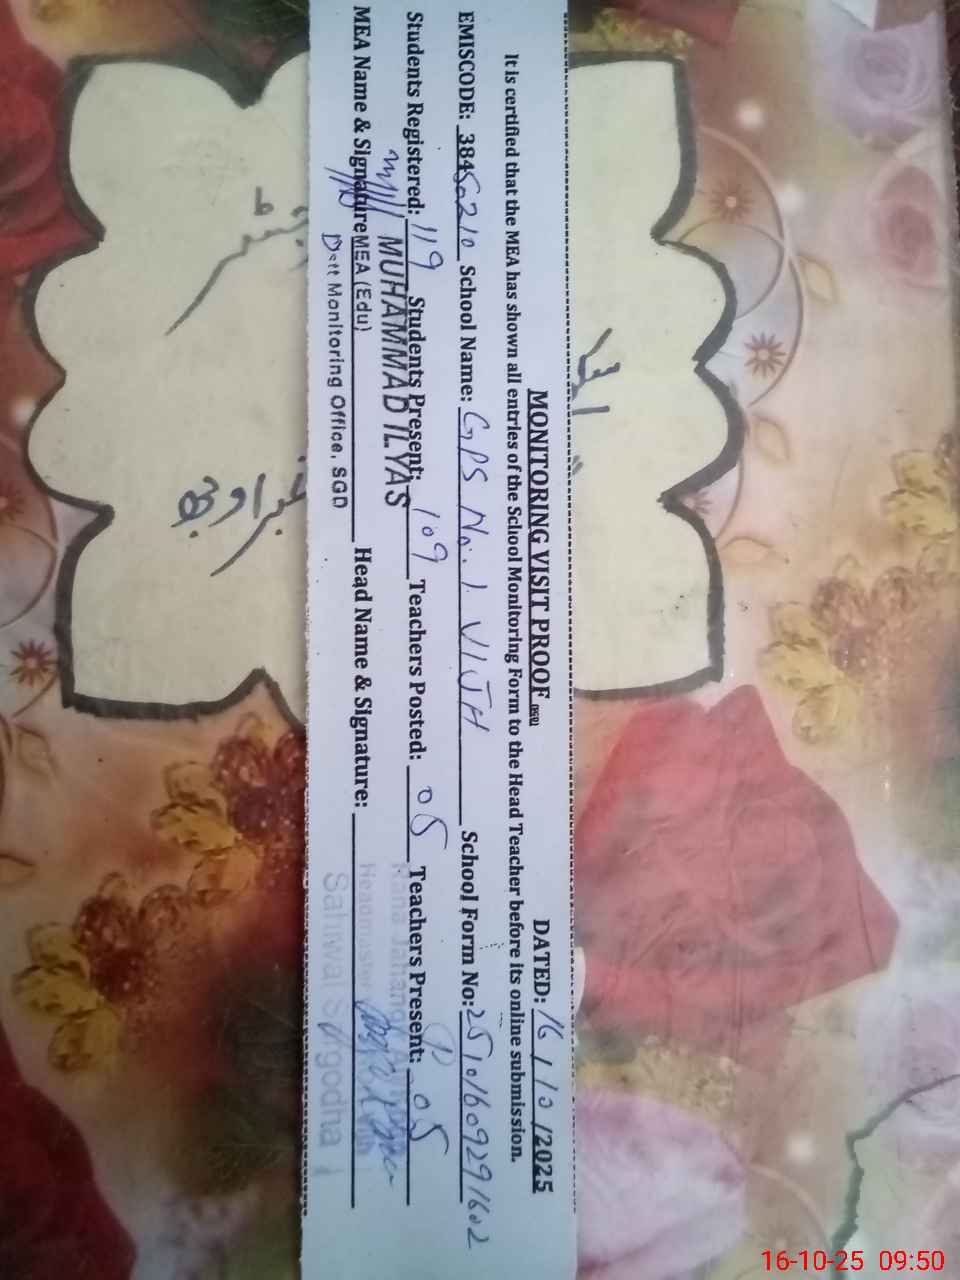 MONITORING VISIT PROOF DATED: 16/10/2025
It is certified that the MEA has shown all entries of the School Monitoring Form to the Head Teacher before its online submission.
EMISCODE: 38450210 School Name: GPS No. 1 VIJH School Form No: 25101609291602
Students Registered: 119 Students Present: 109 Teachers Posted: 05 Teachers Present: 05
MUHAMMAD ILYAS
MEA Name & Signature Head Name & Signature:
MEA (Edu)
Headmaster
Distt Monitoring Office, SGD
Sahiwal Sargodha
16-10-25 09:50